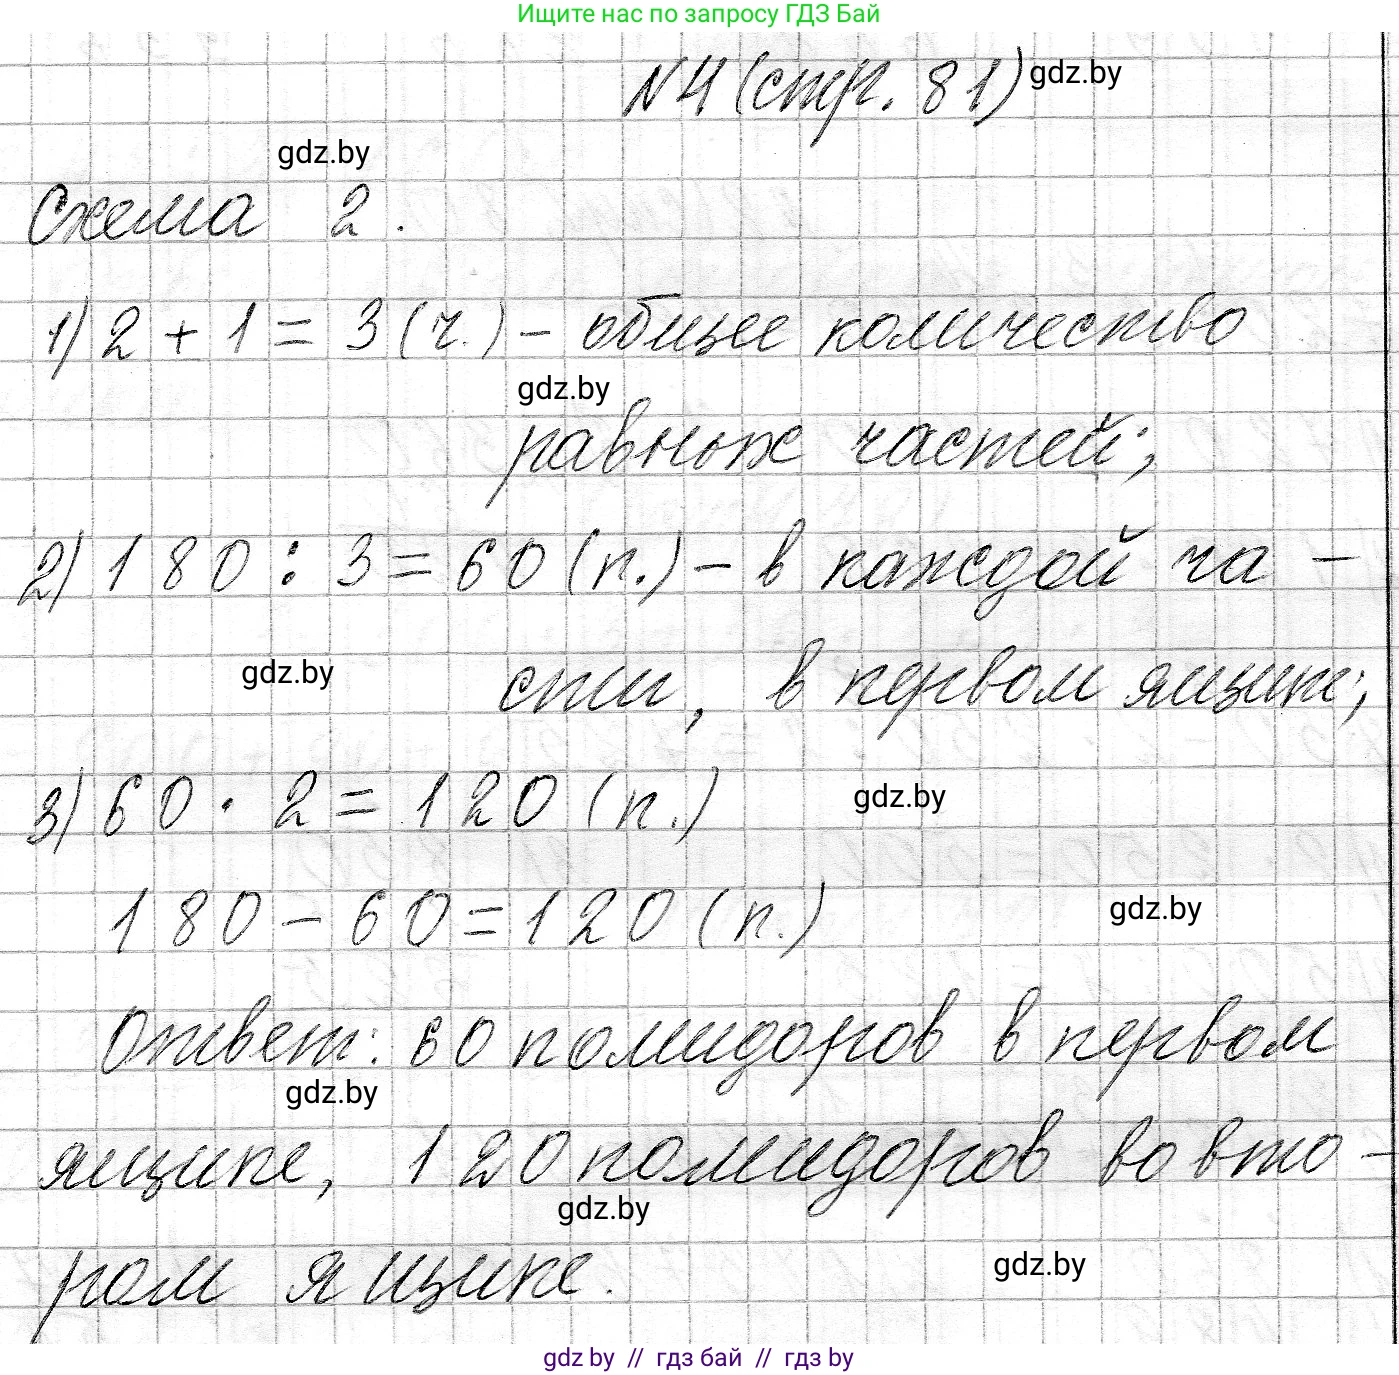 Ищите нас по запросу ГДЗ Бай
№4 (стр. 81) gdz.by
gdz.by
Схема 2.
1) 2 + 1 = 3 (ч.) – общее количество
gdz.by
равных частей;
2) 180 : 3 = 60 (п.) – в каждой ча-
gdz.by
сти, в первом ящике;
3) 60 · 2 = 120 (п.)
gdz.by
180 – 60 = 120 (п.)
gdz.by
Ответ: 60 помидоров в первом
gdz.by
ящике, 120 помидоров во вто-
gdz.by
ром ящике.
gdz.by
gdz by // гдз бай // гдз by